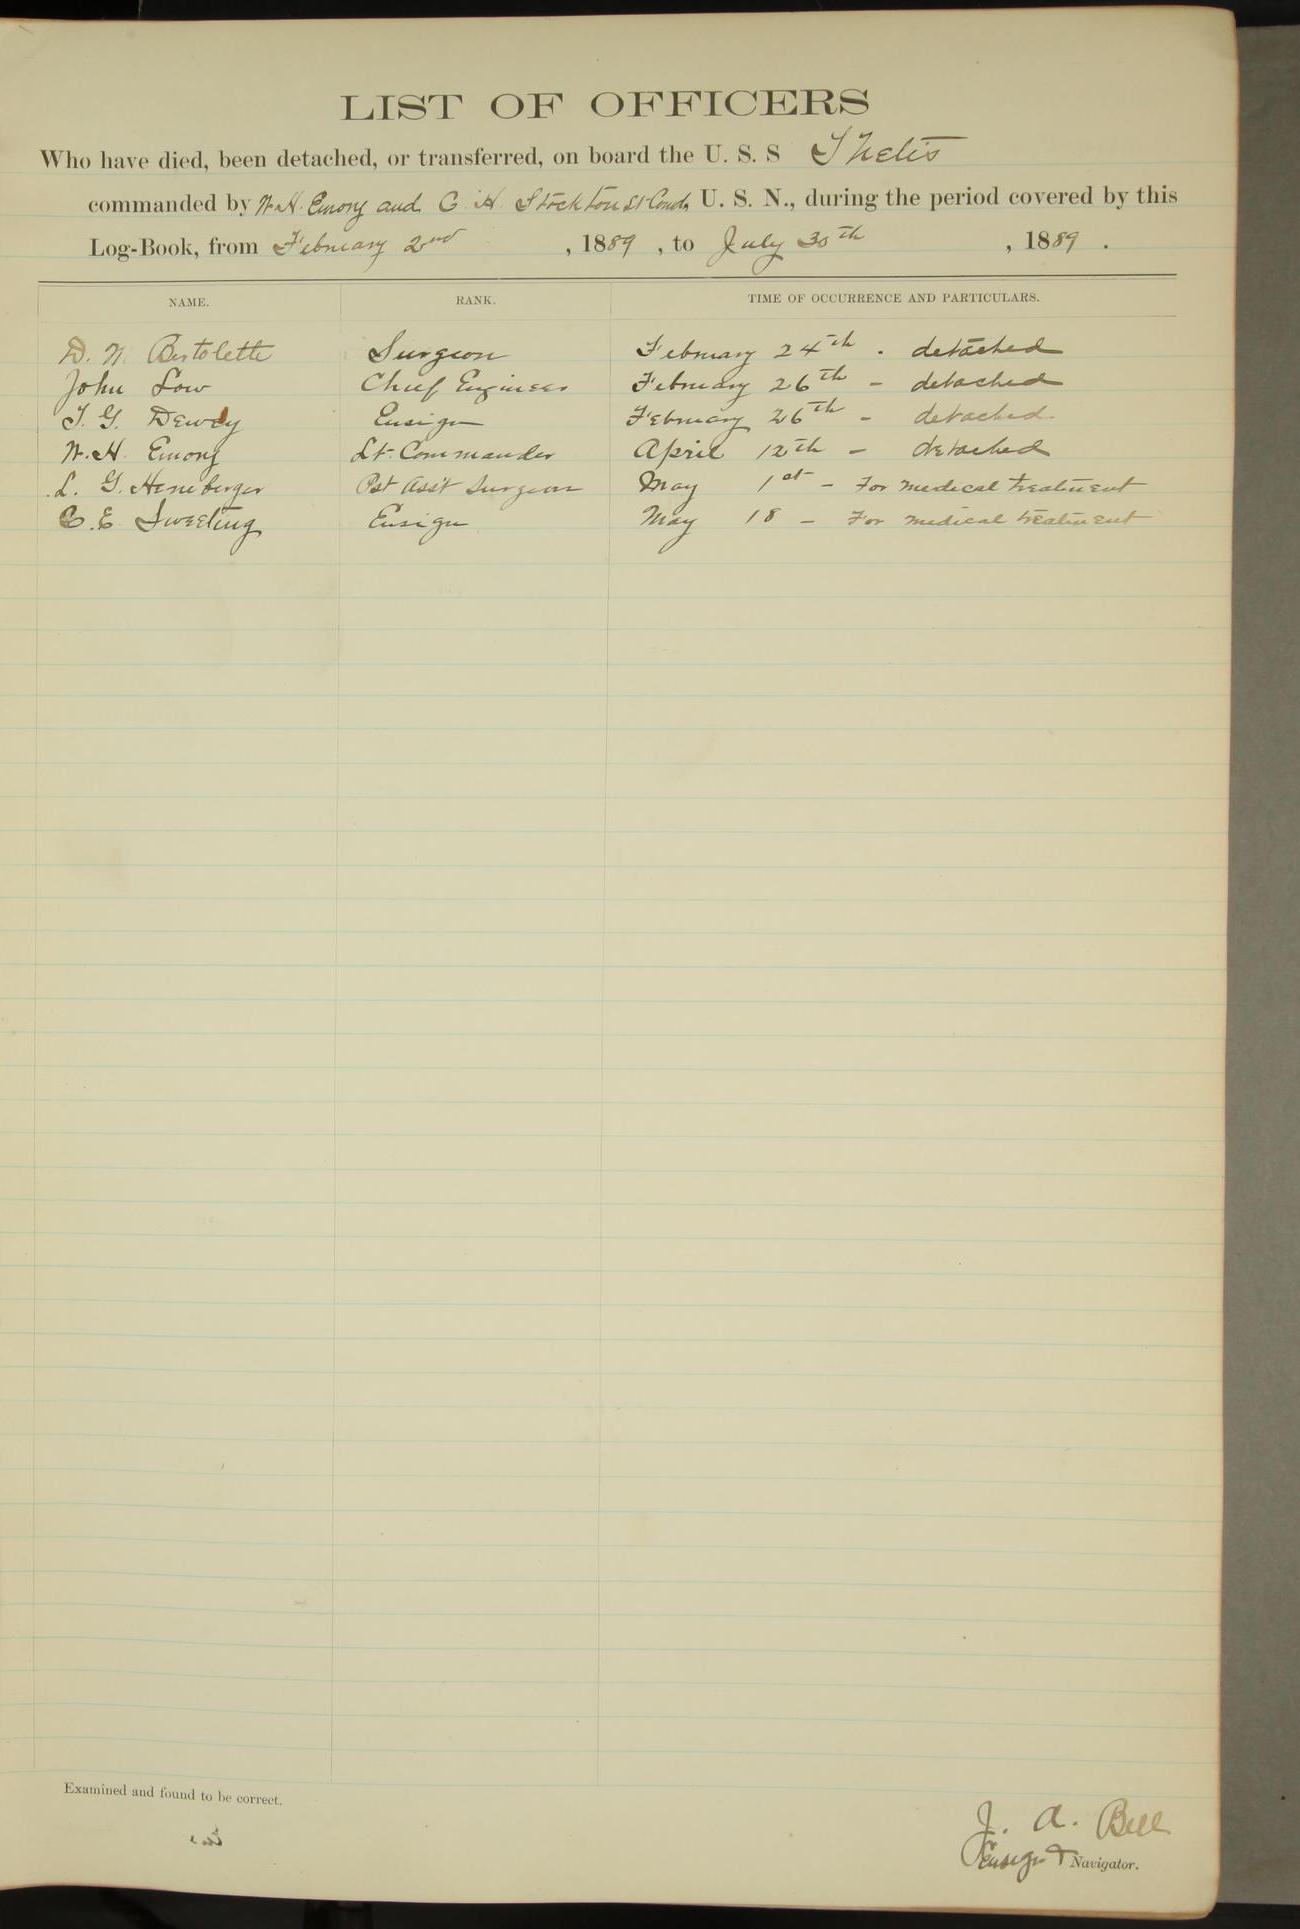 LIST OF OFFICERS
Who have died, been detached, or transferred, on board the U. S. S Thetis
commanded by W. H. Emory and C. H. Stockton Lt Comdr U. S. N., during the period covered by this
Log-Book, from February 2nd , 1889 , to July 30th , 1889 .
NAME. RANK. TIME OF OCCURRENCE AND PARTICULARS.
D. N. Bertolette Surgeon February 24th - detached
John Low Chief Engineer February 26th - detached
T. G. Dewey Ensign February 26th - detached
W. H. Emory Lt-Commander April 12th - detached
L. G. Heneberger Pst Asst Surgeon May 1st - For medical treatment
C. E. Sweeting Ensign May 18 - For medical treatment
Examined and found to be correct.
J. A. Bell
Ensign & Navigator.